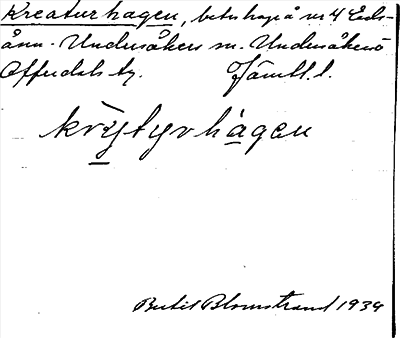 Kreaturhagen, beteshage å nr 4 Eds-
ånn. Undersåkers sn. Undersåkers o
Offerdals tg. Jämtl. l.
krytyrhagen
Bertil Blomstrand 1939